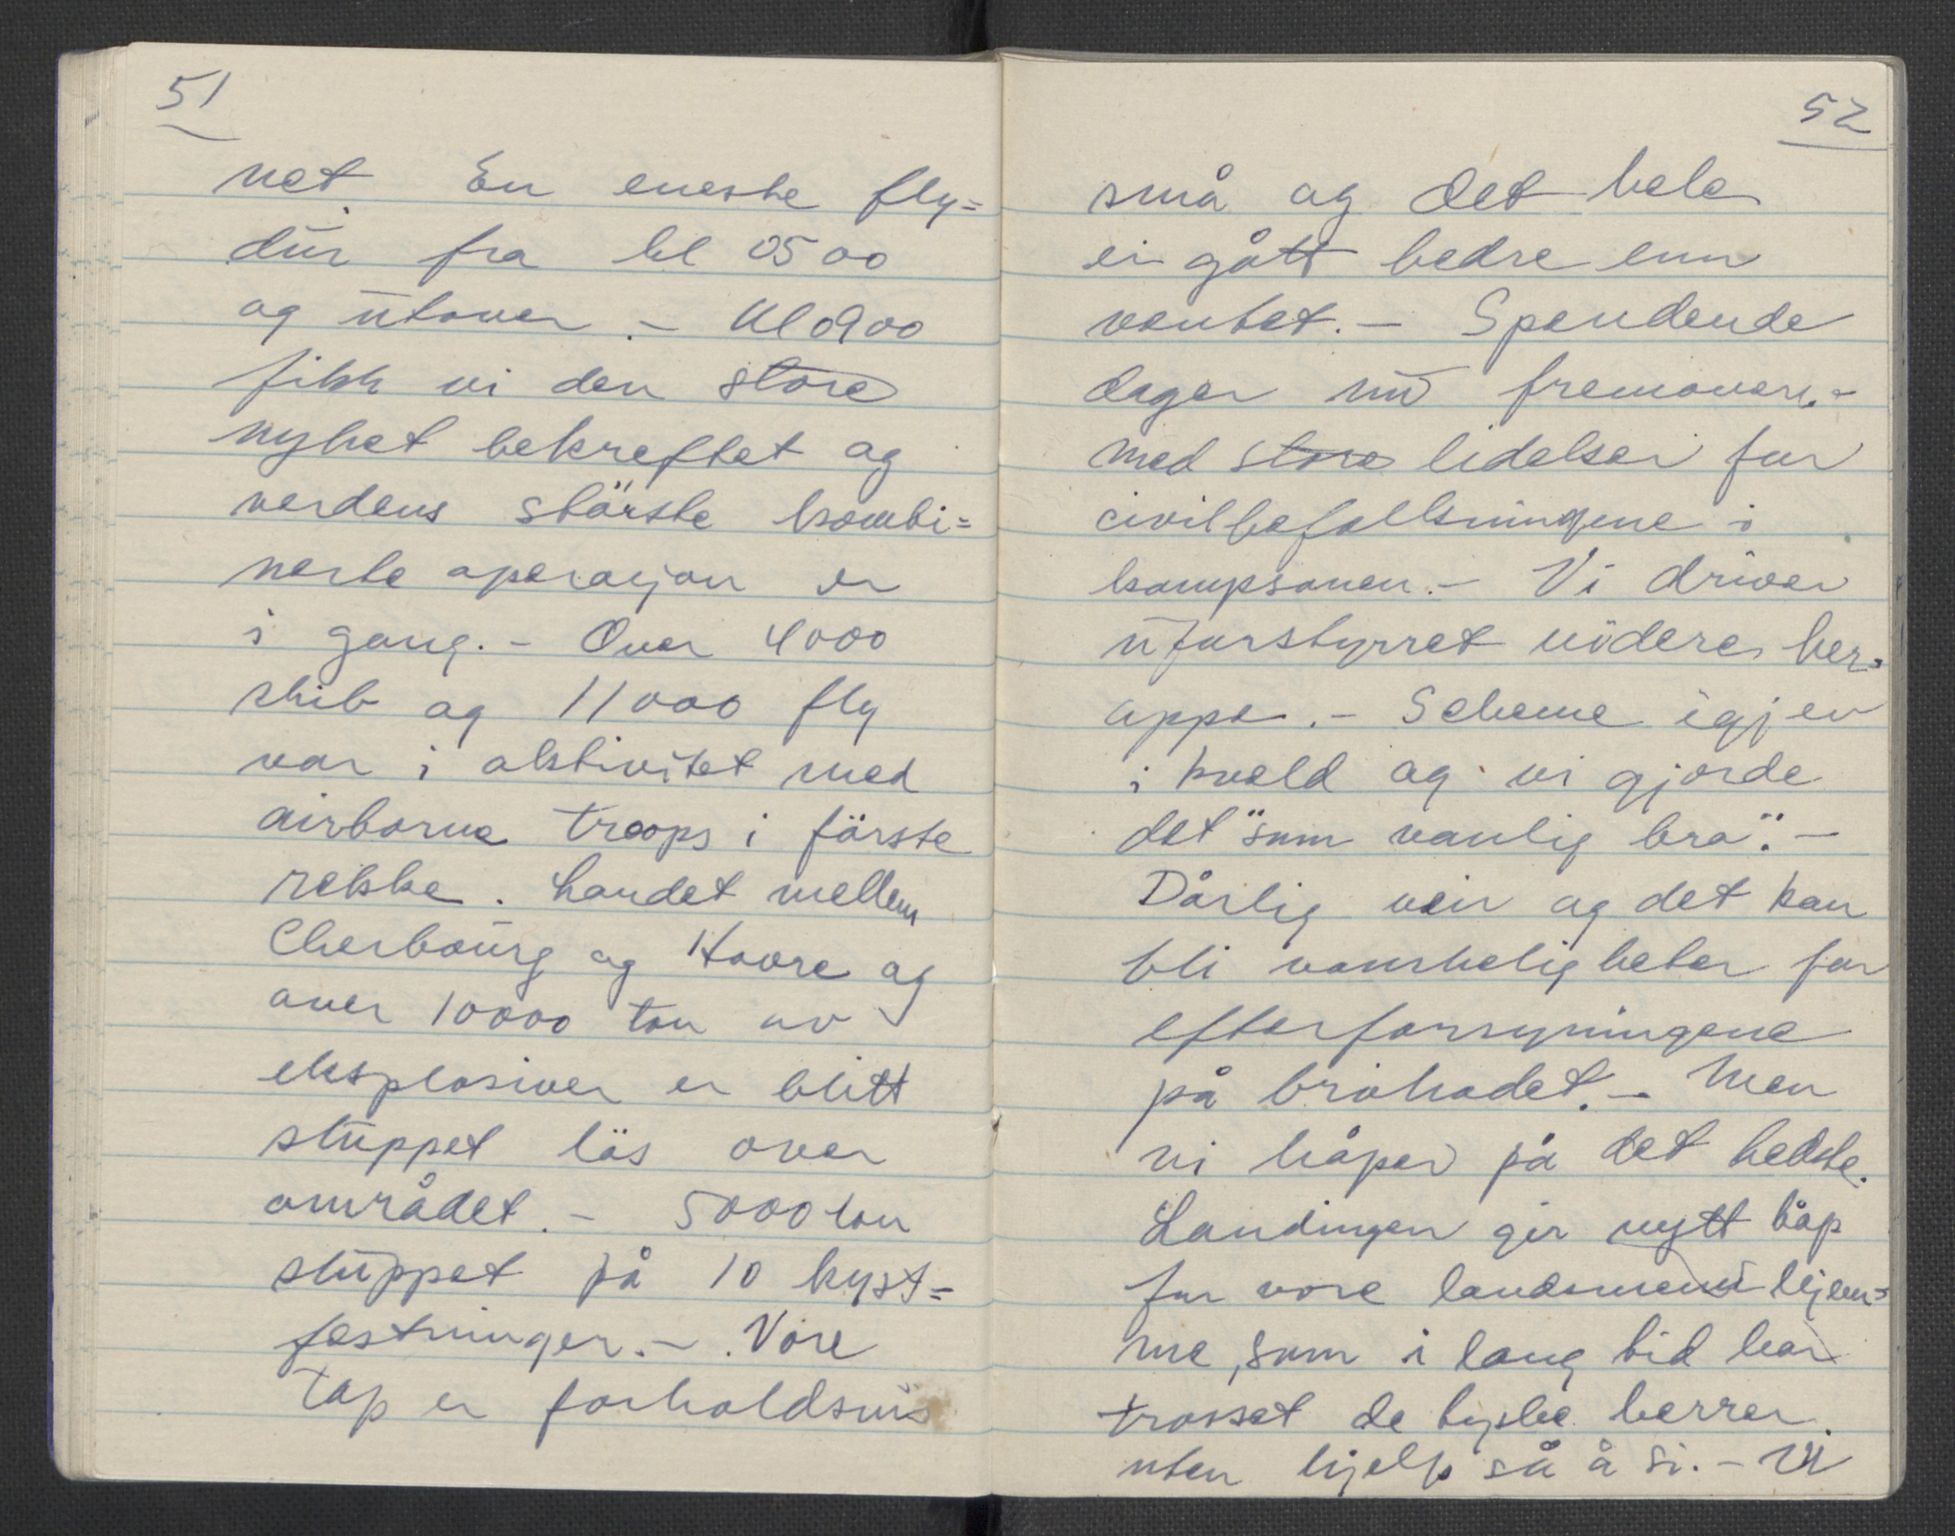 51
net. En eneste fly=
dur fra kl 0500
og utover. - Kl 0900
fikk vi den store
nyhet bekreftet og
verdens störste kombi=
nerte operasjon er
i gang. - Over 4000
skib og 11000 fly
var i aktivitet med
airborne troops i förste
rekke. Landet mellem
Cherbourg og Havre og
over 10000 ton av
eksplosiver er blitt
sluppet lös over
området. - 5000 ton
sluppet på 10 kyst=
festninger. - Våre
tap er forholdsvis
52
små og det hele
er gått bedre enn
ventet. - Spendende
dager nu fremover. -
med store lidelser for
civilbefolkningene i
kampsonen. - Vi driver
uforstyrret videre her=
oppe. - Scheme igjen
i kveld og vi gjorde
det "som vanlig bra". -
Dårlig veir og det kan
bli vanskeligheter for
efterforsyningene
på brohodet. - Men
vi håper på det bedste.
Landingen gir nytt håp
for vore landsmenn hjem=
me, som i lang tid har
trosset de tyske herrer
uten hjelp så å si. - Vi